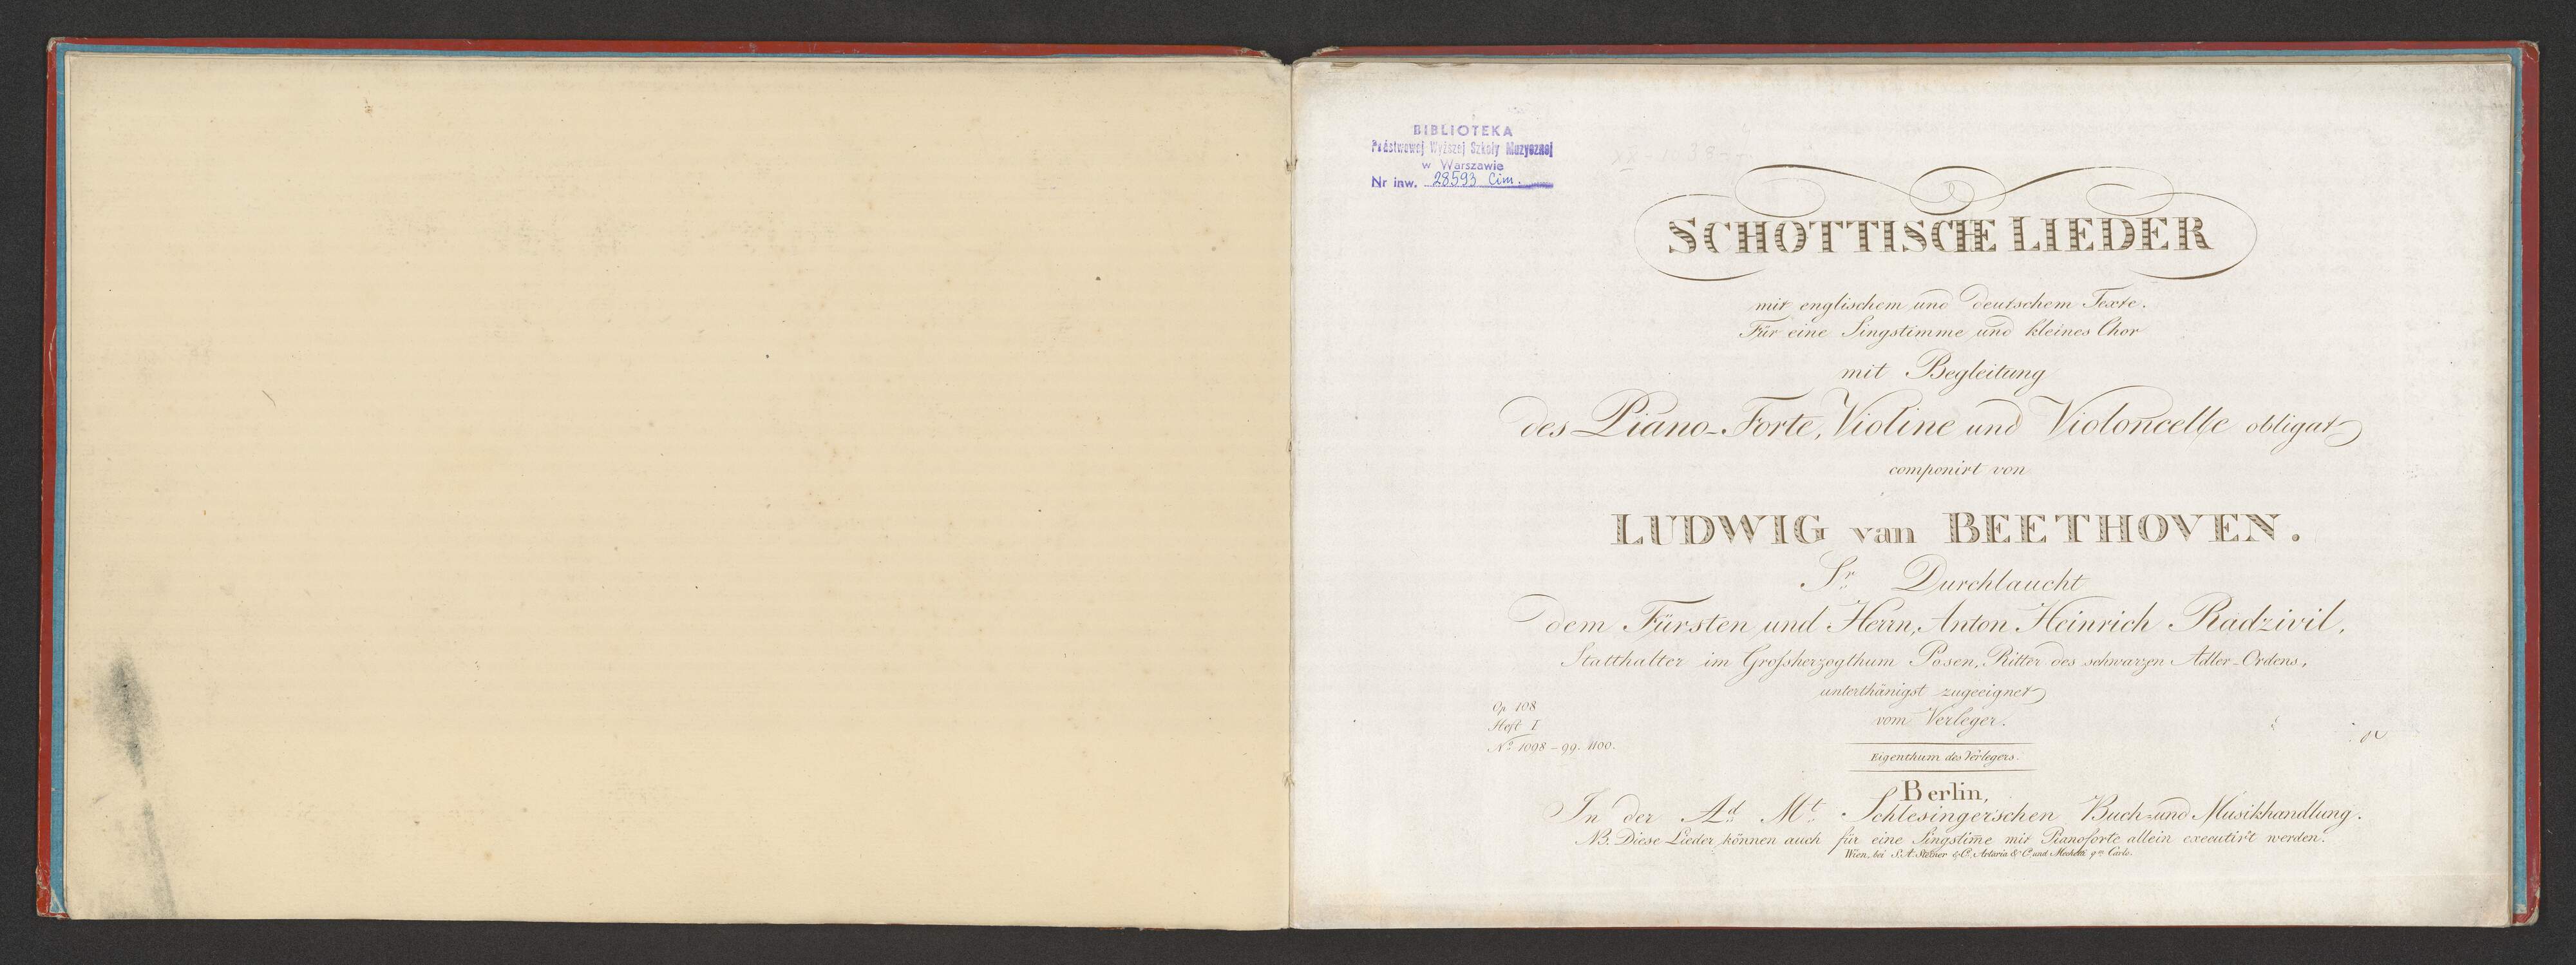 BIBLIOTEKA
Państwowej Wyższej Szkoły Muzycznej
w Warszawie
Nr inw. 28593 Cim.
SCHOTTISCHE LIEDER
mit englischem und deutschem Texte.
Für eine Singstimme und kleines Chor
mit Begleitung
des Piano-Forte, Violine und Violoncelle obligat
componirt von
LUDWIG van BEETHOVEN.
Sr. Durchlaucht
dem Fürsten und Herrn, Anton Heinrich Radzivil,
Statthalter im Grossherzogthum Posen, Ritter des schwarzen Adler-Ordens,
unterthänigst zugeeignet
vom Verleger.
Op 108
Heft I
No. 1098-99. 1100.
Eigenthum des Verlegers.
Berlin,
In der Ad. Mt. Schlesingerschen Buch- und Musikhandlung.
NB. Diese Lieder können auch für eine Singstim̄e mit Pianoforte allein executirt werden.
Wien, bei S. A. Steiner & C. Artaria & C. und Mechetti qm. Carlo.